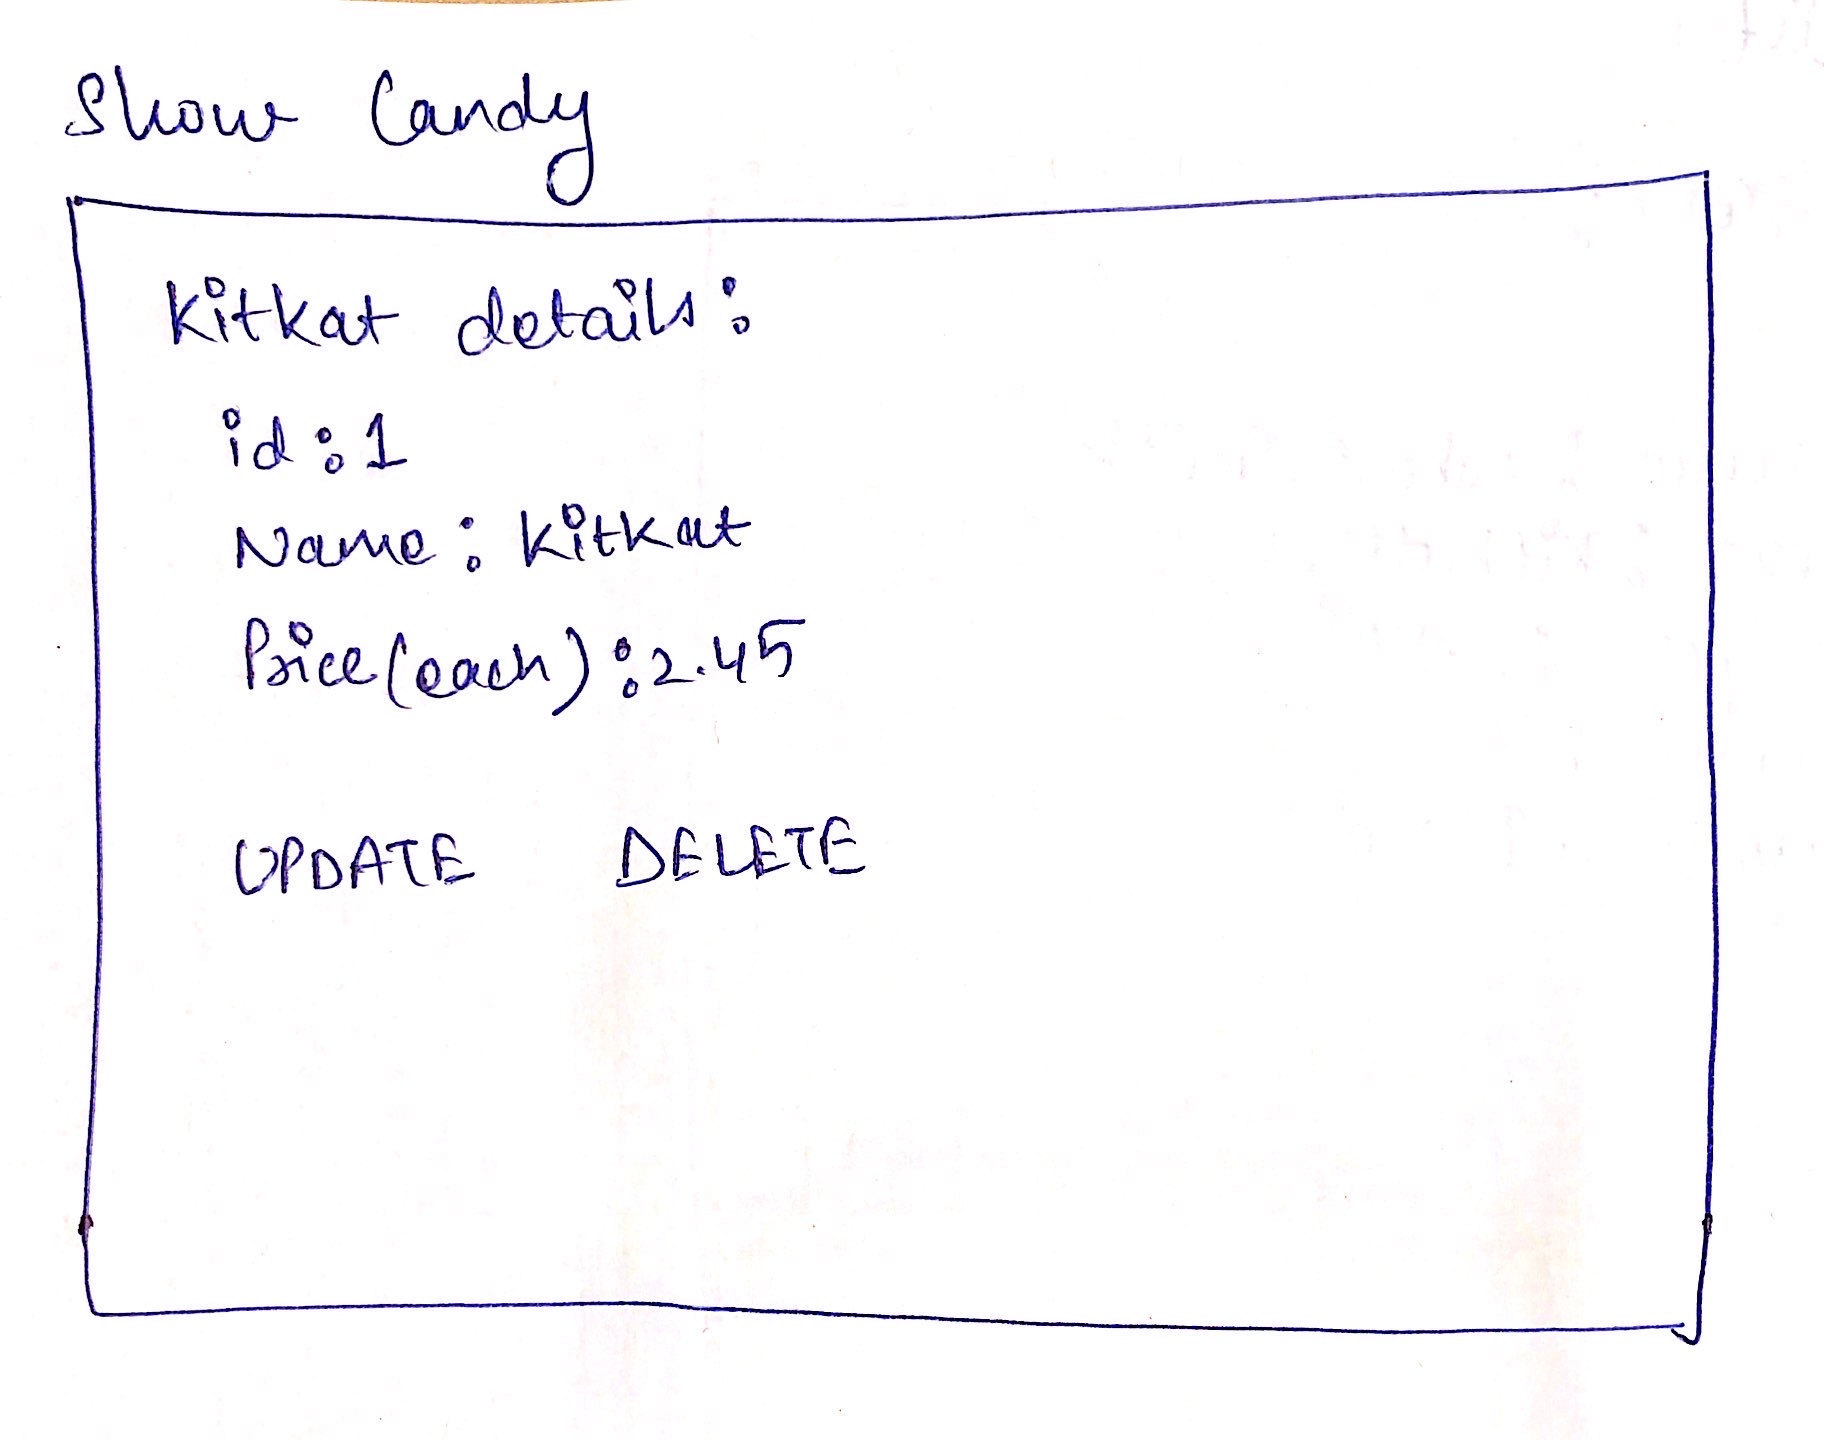 Show Candy
Kitkat details:
id:1
Name: Kitkat
Price(each):2.45
UPDATE DELETE